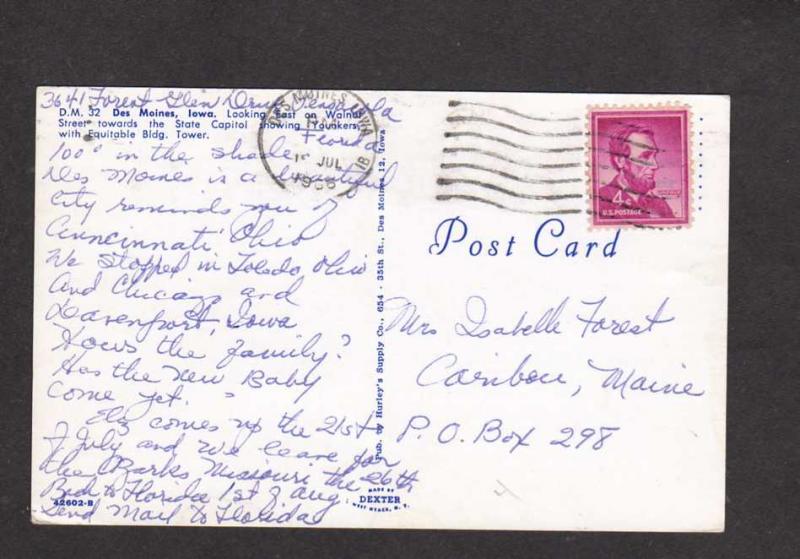 3641 Forest Glen Drive Pensacola
Florida
D.M. 32 Des Moines, Iowa. Looking East on Walnut
Street towards the State Capitol showing Younkers,
with Equitable Bldg. Tower.
100° in the shade
Des Moines is a beautiful
City reminds you of
Cincinnati Ohio
We stopped in Toledo, Ohio
And Chicago and
Davenport, Iowa
Hows the family?
Has the new Baby
come yet.
comes up the 21st
of July and we leave for
the Missouri the 26th
Back to Florida 1st of Aug.
Send Mail to Florida
42602-B
Pub. by Hurley's Supply Co., 654 - 35th St., Des Moines 12, Iowa
MADE BY
DEXTER
WEST NYACK, N. Y.
DES MOINES, IOWA
JUL
4¢
U.S. POSTAGE
Post Card
Mrs Isabelle Forest
Caribou, Maine
P.O. Box 298